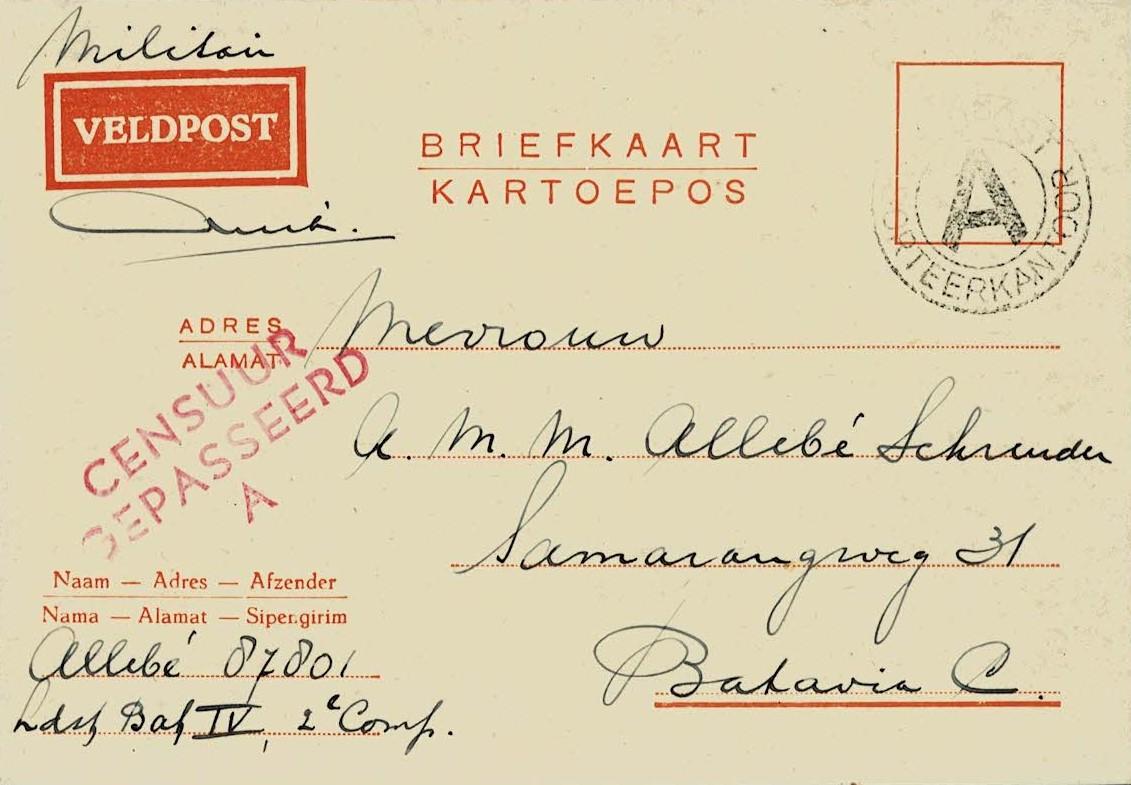 Militair
VELDPOST
BRIEFKAART
KARTOEPOS
A
ORTEERKANTOOR
ADRES
ALAMAT
Mevrouw
CENSUUR
GEPASSEERD
A
A. M. M. Allebé Schreuder
Samarangweg 31
Batavia C.
Naam — Adres — Afzender
Nama — Alamat — Sipengirim
Allebé 87801
Ldst Bat IV, 2e Comp.